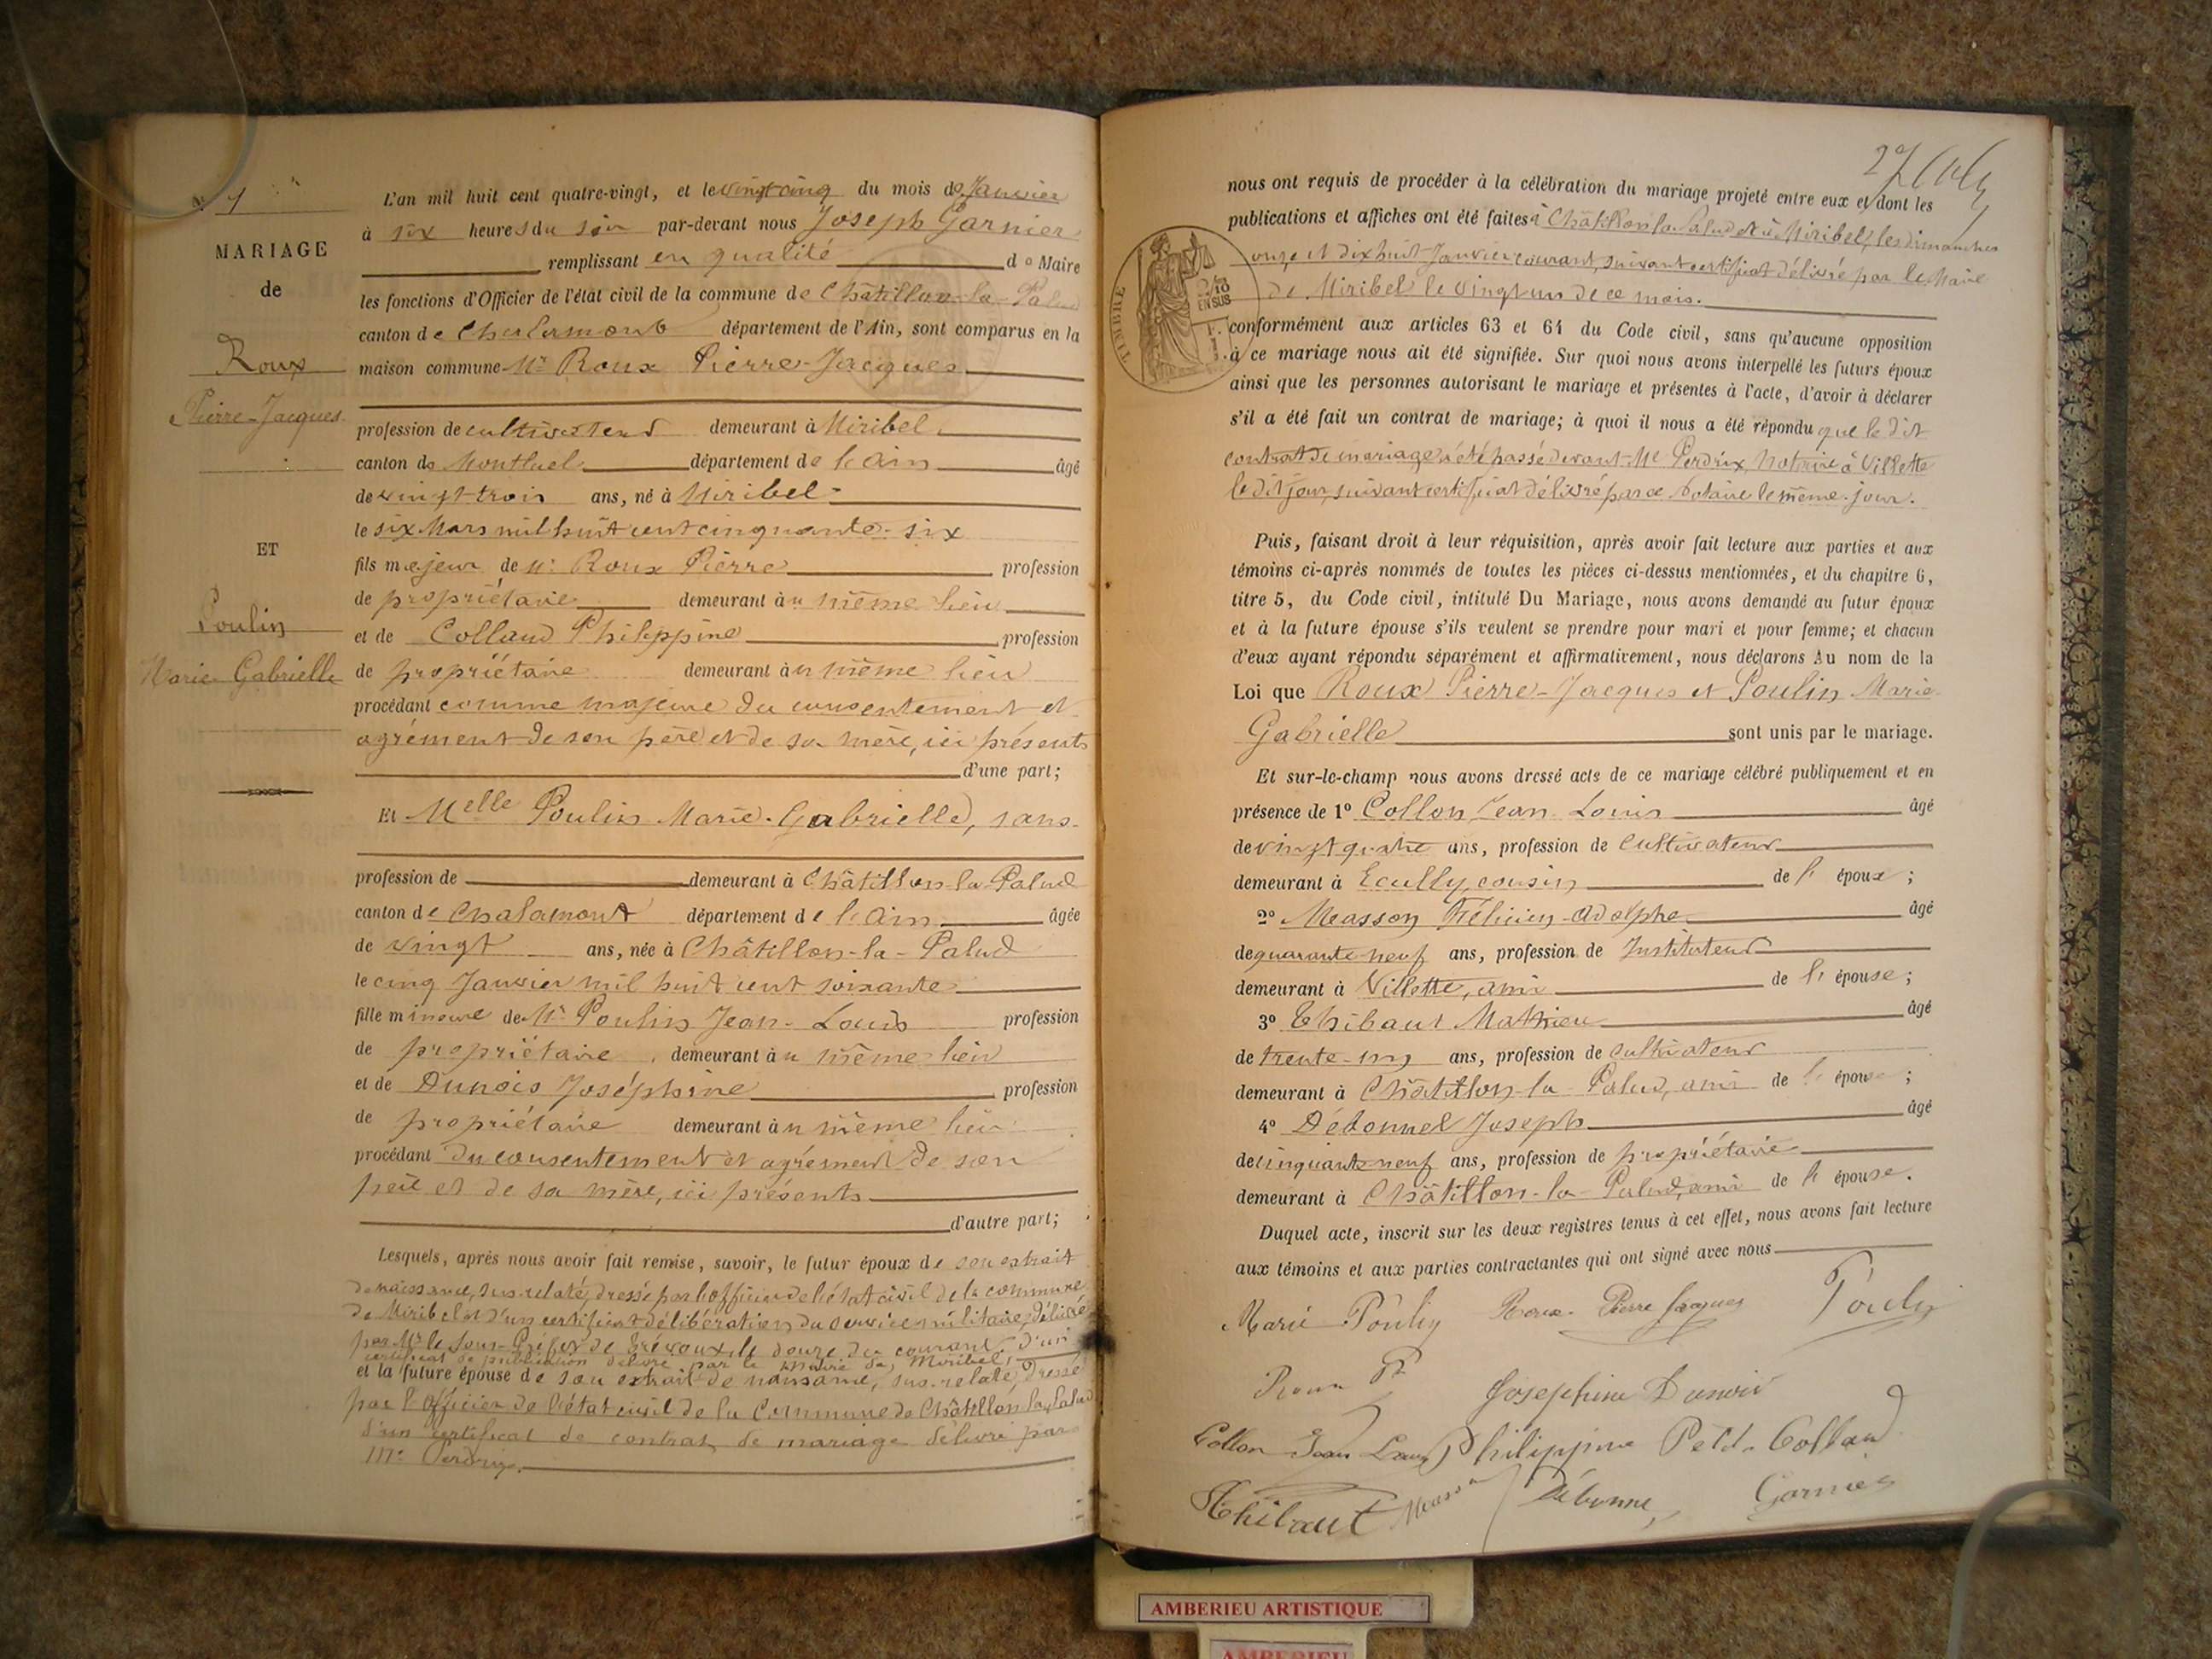 N° 1
MARIAGE
de
Roux
Pierre-Jacques
ET
Poulin
Marie Gabrielle
L'an mil huit cent quatre-vingt, et le vingt cinq du mois de Janvier
à six heures du soir par-devant nous Joseph Garnier
remplissant en qualité de Maire
les fonctions d'Officier de l'état civil de la commune de Châtillon-la-Palud
canton de Chalamont département de l'Ain, sont comparus en la
maison commune Mr Roux Pierre-Jacques
profession de cultivateur demeurant à Miribel
canton de Montluel département de l'Ain âgé
de vingt-trois ans, né à Miribel
le six Mars mil huit cent cinquante-six
fils majeur de Mr Roux Pierre profession
de propriétaire demeurant au même lieu
et de Colland Philippine profession
de propriétaire demeurant au même lieu
procédant comme majeur du consentement et
agrément de son père et de sa mère, ici présents
d'une part;
Et Melle Poulin Marie-Gabrielle, sans
profession de demeurant à Châtillon-la-Palud
canton de Chalamont département de l'Ain âgée
de vingt ans, née à Châtillon-la-Palud
le cinq Janvier mil huit cent soixante
fille mineure de Mr Poulin Jean-Louis profession
de propriétaire demeurant au même lieu
et de Dunois Joséphine profession
de propriétaire demeurant au même lieu
procédant du consentement et agrément de son
père et de sa mère, ici présents
d'autre part;
Lesquels, après nous avoir fait remise, savoir, le futur époux de son extrait
de naissance, sus-relaté, dressé par l'officier de l'état civil de la commune
de Miribel et d'un certificat de libération du service militaire, délivré
par Mr le Sous-Préfet de Trévoux, le douze du courant, d'un
certificat de publication délivré par le Maire de Miribel,
et la future épouse de son extrait de naissance, sus-relaté, dressé
par l'officier de l'état civil de la Commune de Châtillon la Palud
d'un certificat de contrat de mariage délivré par
Me Perdrix.
nous ont requis de procéder à la célébration du mariage projeté entre eux et dont les
publications et affiches ont été faites à Châtillon la Palud et à Miribel, les dimanches
onze et dix huit Janvier courant, suivant certificat délivré par le Maire
de Miribel le vingt un de ce mois.
TIMBRE
2/10
EN SUS
conformément aux articles 63 et 64 du Code civil, sans qu'aucune opposition
à ce mariage nous ait été signifiée. Sur quoi nous avons interpellé les futurs époux
ainsi que les personnes autorisant le mariage et présentes à l'acte, d'avoir à déclarer
s'il a été fait un contrat de mariage; à quoi il nous a été répondu que le dit
contrat de mariage a été passé devant Me Perdrix, Notaire à Villette
le dit jour, suivant certificat délivré par ce Notaire le même jour.
Puis, faisant droit à leur réquisition, après avoir fait lecture aux parties et aux
témoins ci-après nommés de toutes les pièces ci-dessus mentionnées, et du chapitre 6,
titre 5, du Code civil, intitulé Du Mariage, nous avons demandé au futur époux
et à la future épouse s'ils veulent se prendre pour mari et pour femme; et chacun
d'eux ayant répondu séparément et affirmativement, nous déclarons Au nom de la
Loi que Roux Pierre-Jacques et Poulin Marie
Gabrielle sont unis par le mariage.
Et sur-le-champ nous avons dressé acte de ce mariage célébré publiquement et en
présence de 1° Collon Jean Louis âgé
de vingt quatre ans, profession de Cultivateur
demeurant à Ecully, cousin de l' époux;
2° Measson Félicien-Adolphe âgé
de quarante-neuf ans, profession de Instituteur
demeurant à Villette, ami de l' épouse;
3° Thibaut Mathieu âgé
de trente-un ans, profession de Cultivateur
demeurant à Châtillon-la-Palud, ami de l' épouse;
4° Débonnel Joseph âgé
de cinquante-neuf ans, profession de propriétaire
demeurant à Châtillon-la-Palud, ami de l' épouse.
Duquel acte, inscrit sur les deux registres tenus à cet effet, nous avons fait lecture
aux témoins et aux parties contractantes qui ont signé avec nous
Marie Poulin Roux Pierre Jacques Poulin
Roux Josephine Dunois
Collon Jean Louis Philippine Colland
Thibaut Measson Débonnel Garnier
AMBERIEU ARTISTIQUE
AMBERIEU